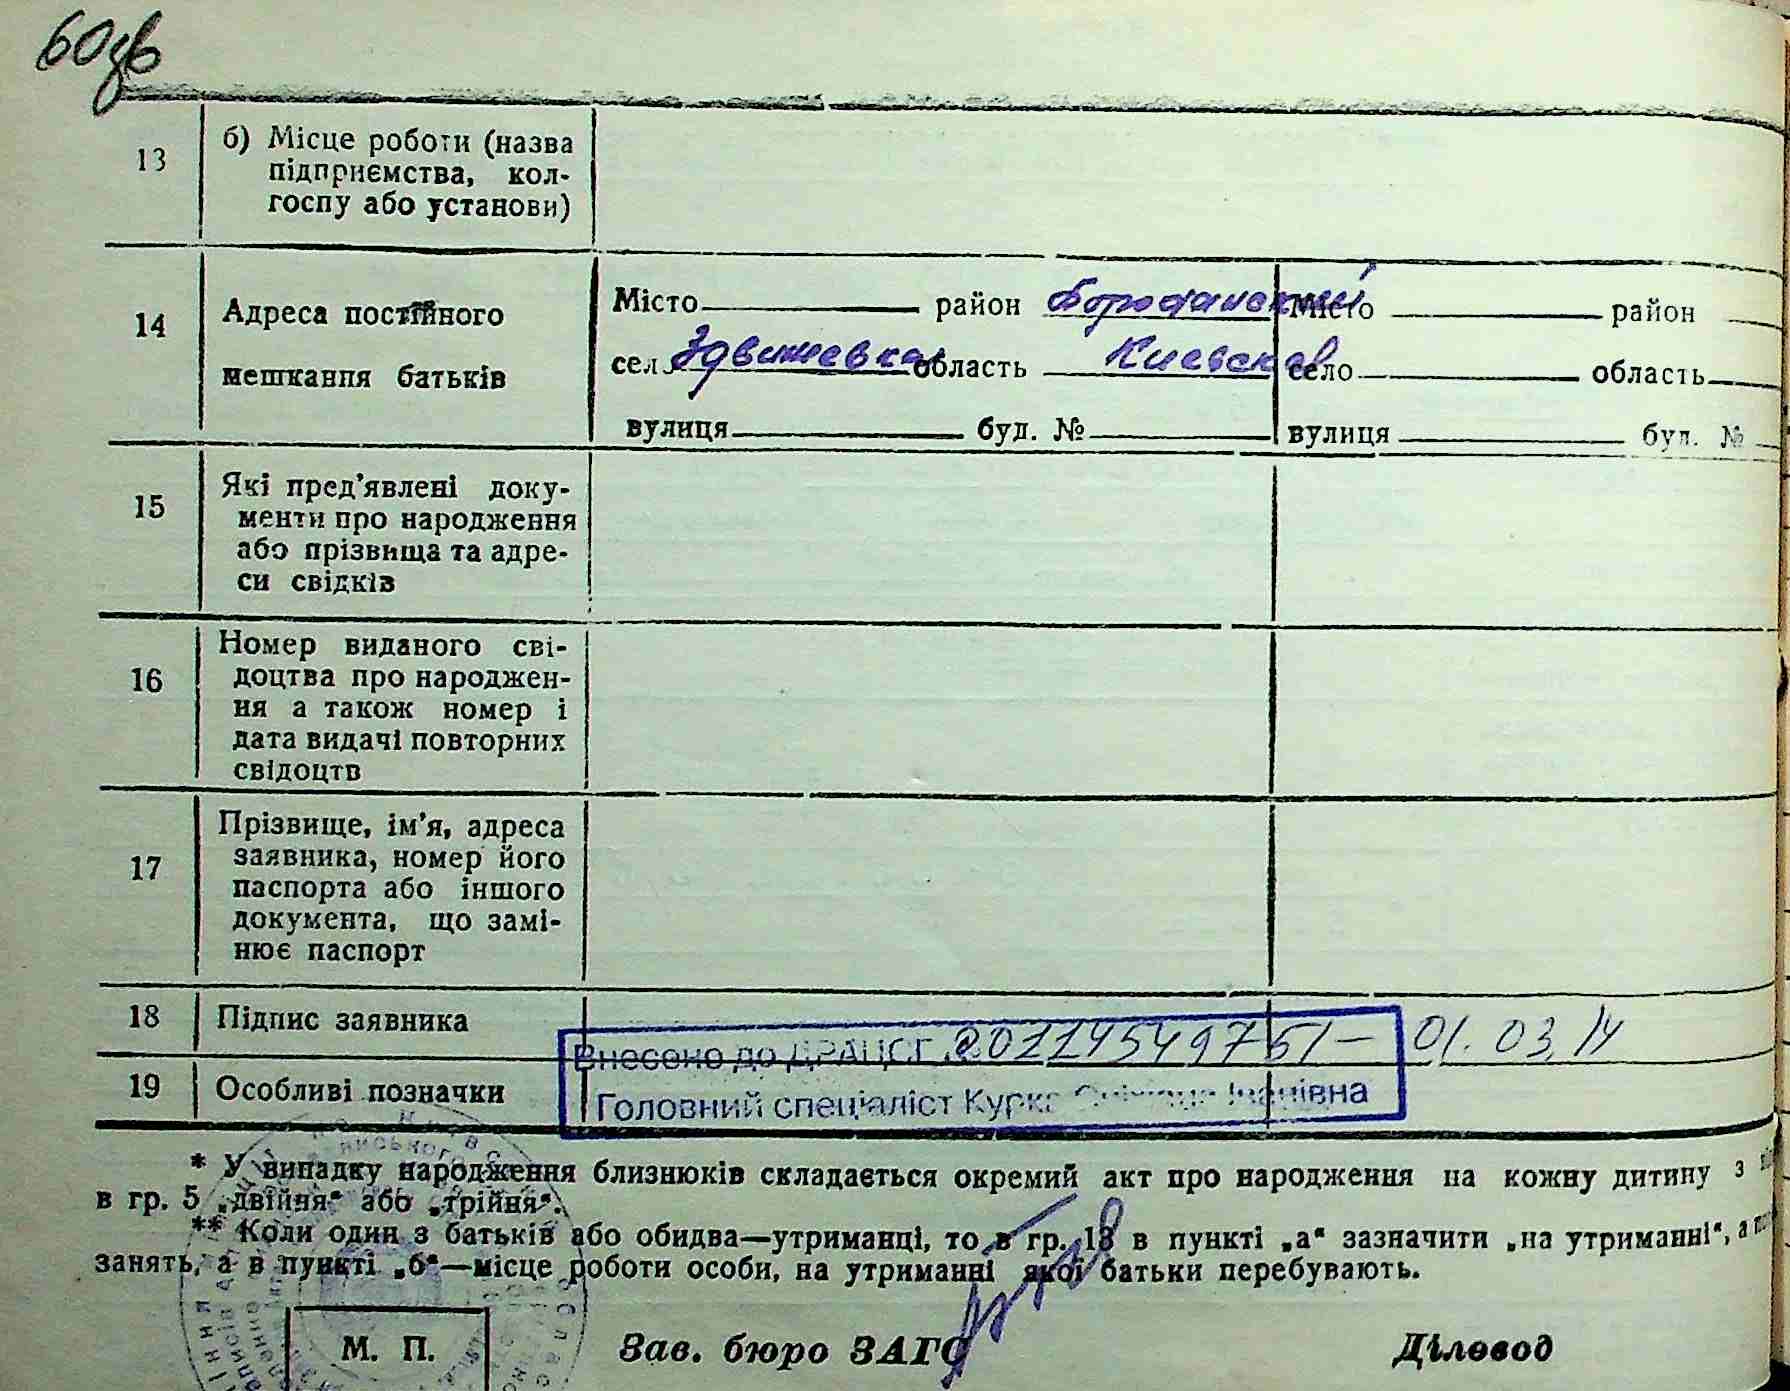 60зв
13 б) Місце роботи (назва
підприємства, кол-
госпу або установи)
14 Адреса постійного
мешкання батьків
Місто район Бородянский Місто район
село Здвижевка область Киевская село область
вулиця буд. № вулиця буд. №
15 Які пред’явлені доку-
менти про народження
або прізвища та адре-
си свідків
16 Номер виданого сві-
доцтва про народжен-
ня а також номер і
дата видачі повторних
свідоцтв
17 Прізвище, ім’я, адреса
заявника, номер його
паспорта або іншого
документа, що замі-
нює паспорт
18 Підпис заявника
Внесено до ДРАЦСГ 00114549751 – 01.03.14
19 Особливі позначки
Головний спеціаліст Іванівна
* У випадку народження близнюків складається окремий акт про народження на кожну дитину з
в гр. 5 „двійня“ або „трійня“.
** Коли один з батьків або обидва—утриманці, то в гр. 13 в пункті „а“ зазначити „на утриманні“, а
занять, а в пункті „б“—місце роботи особи, на утриманні якої батьки перебувають.
М. П. Зав. бюро ЗАГС Діловод